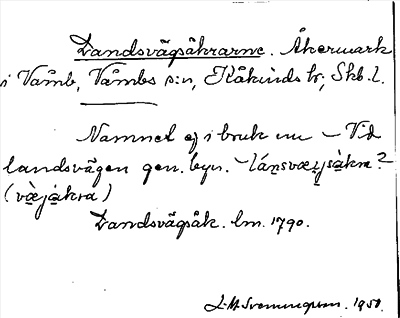 Landsvägsåkrarne. Åkermark
i Våmb, Våmbs s:n, Kåkinds hr, Skb. l.
Namnet ej i bruk nu – Vid
landsvägen gen. byn. – lánsvæjsàkra?
(væ̀jákra)
Landsvägsåk. lm. 1790.
1950.